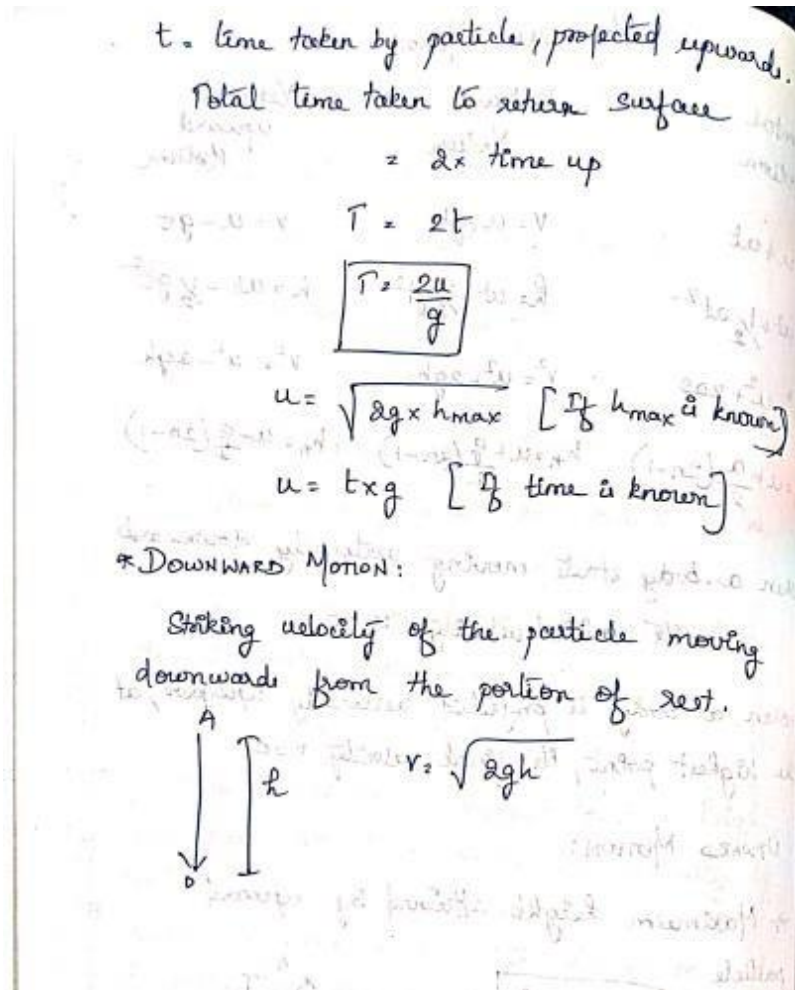 t = time taken by particle, projected upwards.
Total time taken to return surface
= 2x time up
T = 2t
T = 2u/g
u = √(2g x hmax) [If hmax is known]
u = t x g [If time is known]
* DOWNWARD MOTION:
Striking velocity of the particle moving
downwards from the portion of rest.
A
h
v = √(2gh)